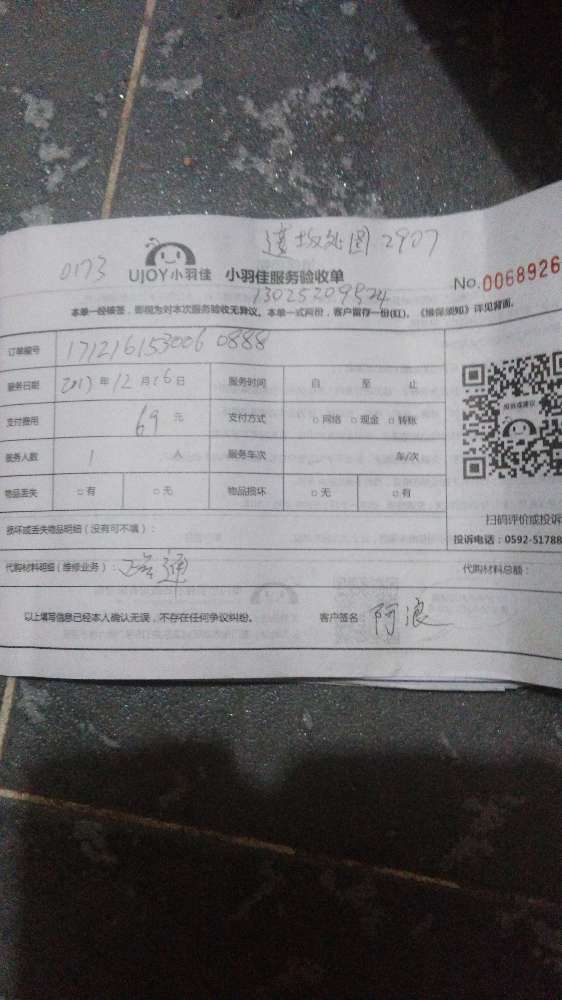 2907
0173
UJOY小羽佳 小羽佳服务验收单
No.0068926
13025209524
本单一经接签，即视为对本次服务验收无异议。本单一式两份，客户留存一份(红)。《维保须知》详见背面。
订单编号 171216153006 0888
服务日期 2017 年 12 月 16 日 服务时间 自 至 止
支付费用 69 元 支付方式 □网络 □现金 □转账
服务人数 1 人 服务车次 车/次
物品丢失 □有 □无 物品损坏 □无 □有
投诉或建议
扫码评价或投诉
损坏或丢失物品明细（没有可不填）：
投诉电话：0592-51788
代购材料明细（维修业务）： 通
代购材料总额：
以上填写信息已经本人确认无误，不存在任何争议纠纷。 客户签名： 阿浪